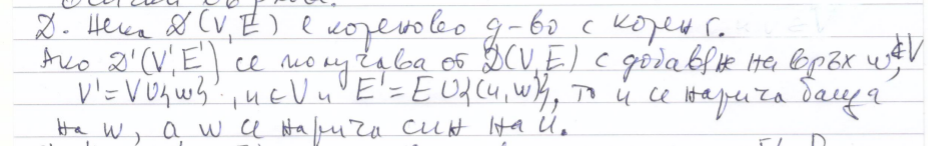 Д. Нека D(V,E) е кореново д-во с корен r.
Ако D'(V',E') се получава от D(V,E) с добавяне на връх w, ∉V
V'=V∪{w}, u∈V и E'=E∪{(u,w)}, то u се нарича баща
на w, а w се нарича син на u.